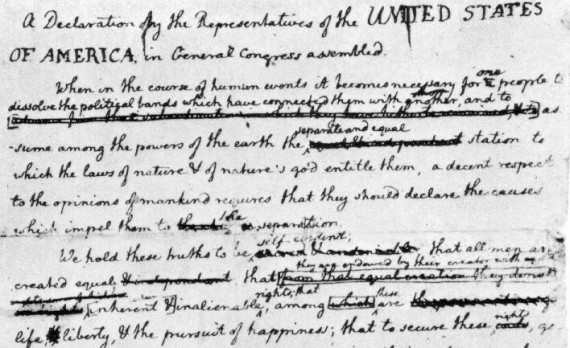 A Declaration by the Representatives of the UNITED STATES
OF AMERICA, in General Congress assembled.
When in the course of human events it becomes necessary for one people to
dissolve the political bands which have connected them with another, and to
as
-sume among the powers of the earth the separate and equal station to
which the laws of nature & of nature's god entitle them, a decent respect
to the opinions of mankind requires that they should declare the causes
which impel them to the separation.
We hold these truths to be self-evident; that all men are
created equal & independant, that they are endowed by their creator with
from that equal creation they derive
rights; that
inherent & inalienable, among which these are
life, liberty, & the pursuit of happiness; that to secure these rights, go